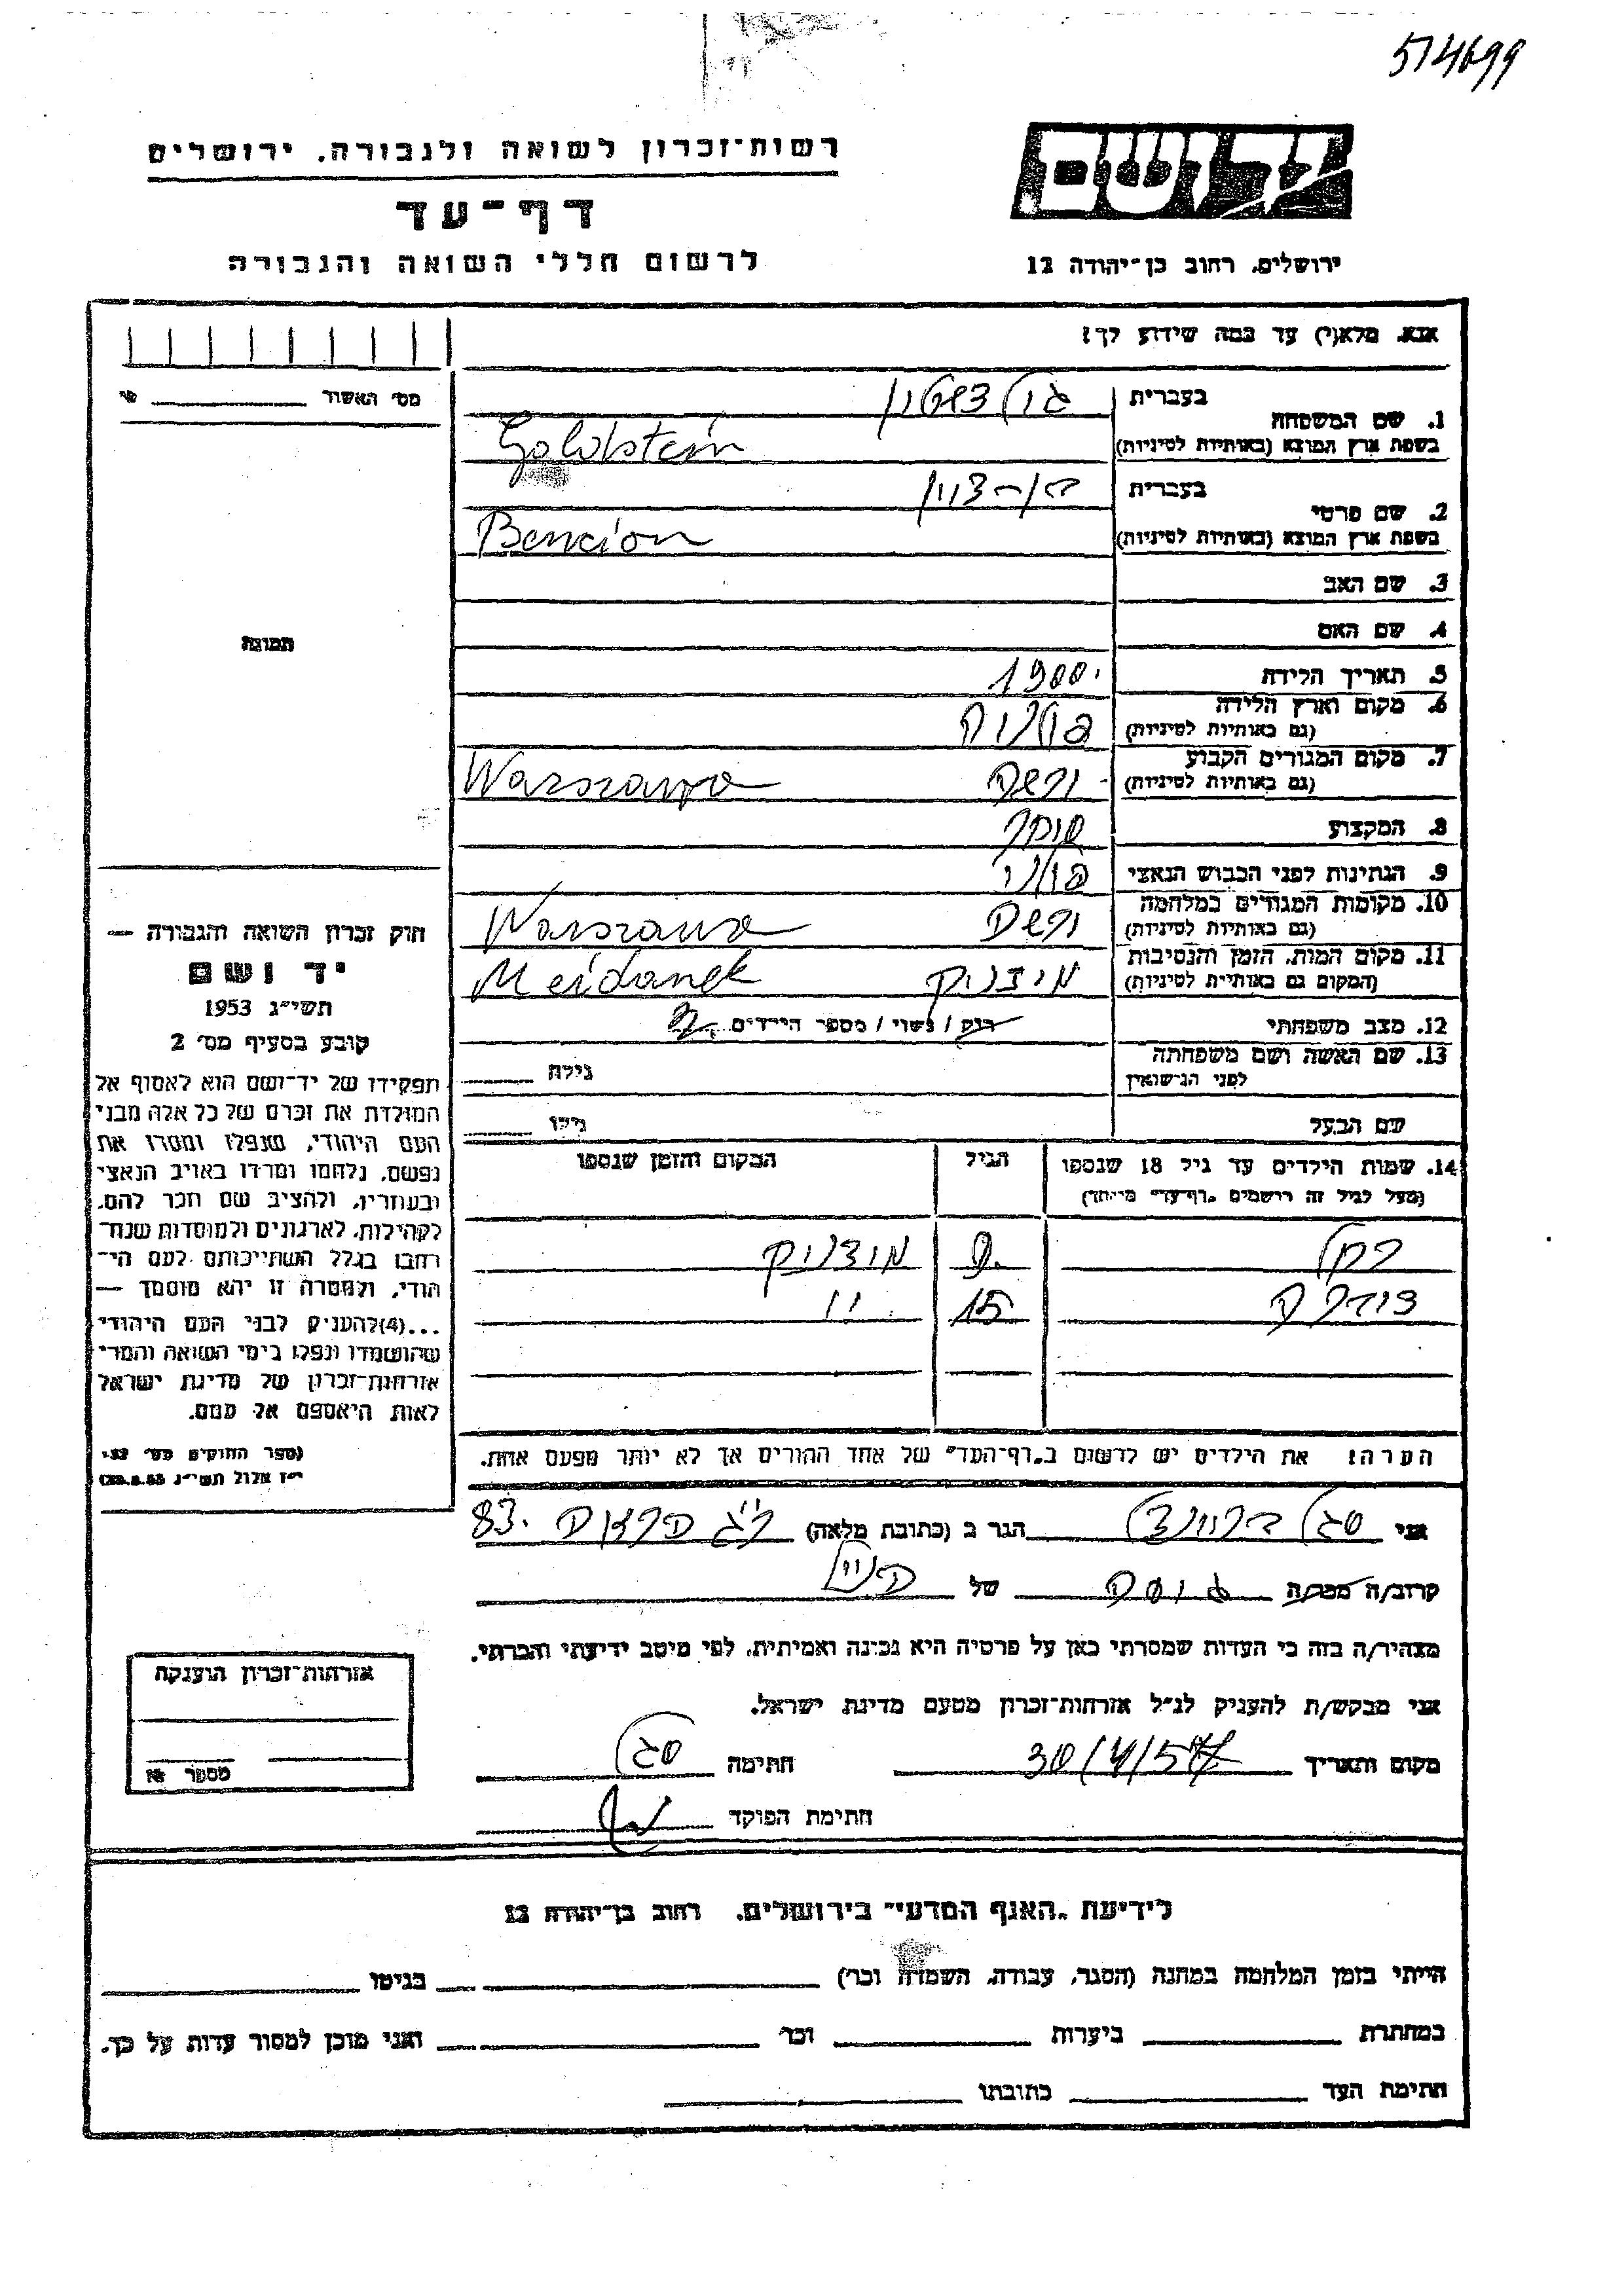 514699
רשות־זכרון לשואה ולגבורה. ירושלים
דף־עד
לרשום חללי השואה והגבורה
ירושלים. רחוב בן־יהודה 12
אנא. מלא(י) עד כמה שידוע לך!
מס׳ האשור
1. שם המשפחה
בעברית
גולדשטיין
בשפת ארץ המוצא (באותיות לטיניות)
Goldstein
2. שם פרטי
בעברית
בן-ציון
בשפת ארץ המוצא (באותיות לטיניות)
Bencion
3. שם האב
4. שם האם
תמונה
5. תאריך הלידה 1900
6. מקום וארץ הלידה
(גם באותיות לטיניות)
7. מקום המגורים הקבוע
(גם באותיות לטיניות) ורשה Warszawa
8. המקצוע סוחר
9. הנתינות לפני הכבוש הנאצי פולני
10. מקומות המגורים במלחמה
(גם באותיות לטיניות) ורשה Warszawa
11. מקום המות, הזמן והנסיבות
(המקום גם באותיות לטיניות) Meidanek
12. מצב משפחתי רוק / נשוי / מספר הילדים 2
13. שם האשה ושם משפחתה
לפני הנישואין גילה
שם הבעל גילו
14. שמות הילדים עד גיל 18 שנספו
(מעל לגיל זה רושמים „דף־עד״ מיוחד)
הגיל
המקום והזמן שנספו
רחל 9
15 "
הערה! את הילדים יש לרשום ב„דף־העד״ של אחד ההורים אך לא יותר מפעם אחת.
חוק זכרון השואה והגבורה —
יד ושם
תשי״ג 1953
קובע בסעיף מס׳ 2
תפקידו של יד־ושם הוא לאסוף אל
המולדת את זכרם של כל אלה מבני
העם היהודי, שנפלו ומסרו את
נפשם, נלחמו ומרדו באויב הנאצי
ובעוזריו, ולהציב שם וזכר להם,
לקהילות, לארגונים ולמוסדות שנח־
רבו בגלל השתייכותם לעם הי־
הודי, ולמטרה זו יהא מוסמך —
...(4)להעניק לבני העם היהודי
שהושמדו ונפלו בימי השואה והמרי
אזרחות־זכרון של מדינת ישראל
לאות היאספם אל עמם.
(ספר החוקים מס׳ 132.
י״ז אלול תשי״ג 28.8.53)
אני סגל הגר ב (כתובת מלאה) 83
קרוב/ה מכר/ה גיסה של
מצהיר/ה בזה כי העדות שמסרתי כאן על פרטיה היא נכונה ואמיתית, לפי מיטב ידיעתי והכרתי.
אני מבקש/ת להעניק לנ״ל אזרחות־זכרון מטעם מדינת ישראל.
מקום ותאריך 30/4/57 חתימה סגל
חתימת הפוקד
אזרחות־זכרון הוענקה
מספר
לידיעת „האגף המדעי״ בירושלים. רחוב בן־יהודה 12
הייתי בזמן המלחמה במחנה (הסגר, עבודה, השמדה וכו׳) בגיטו
במחתרת ביערות וכו׳ ואני מוכן למסור עדות על כך.
חתימת העד כתובתו